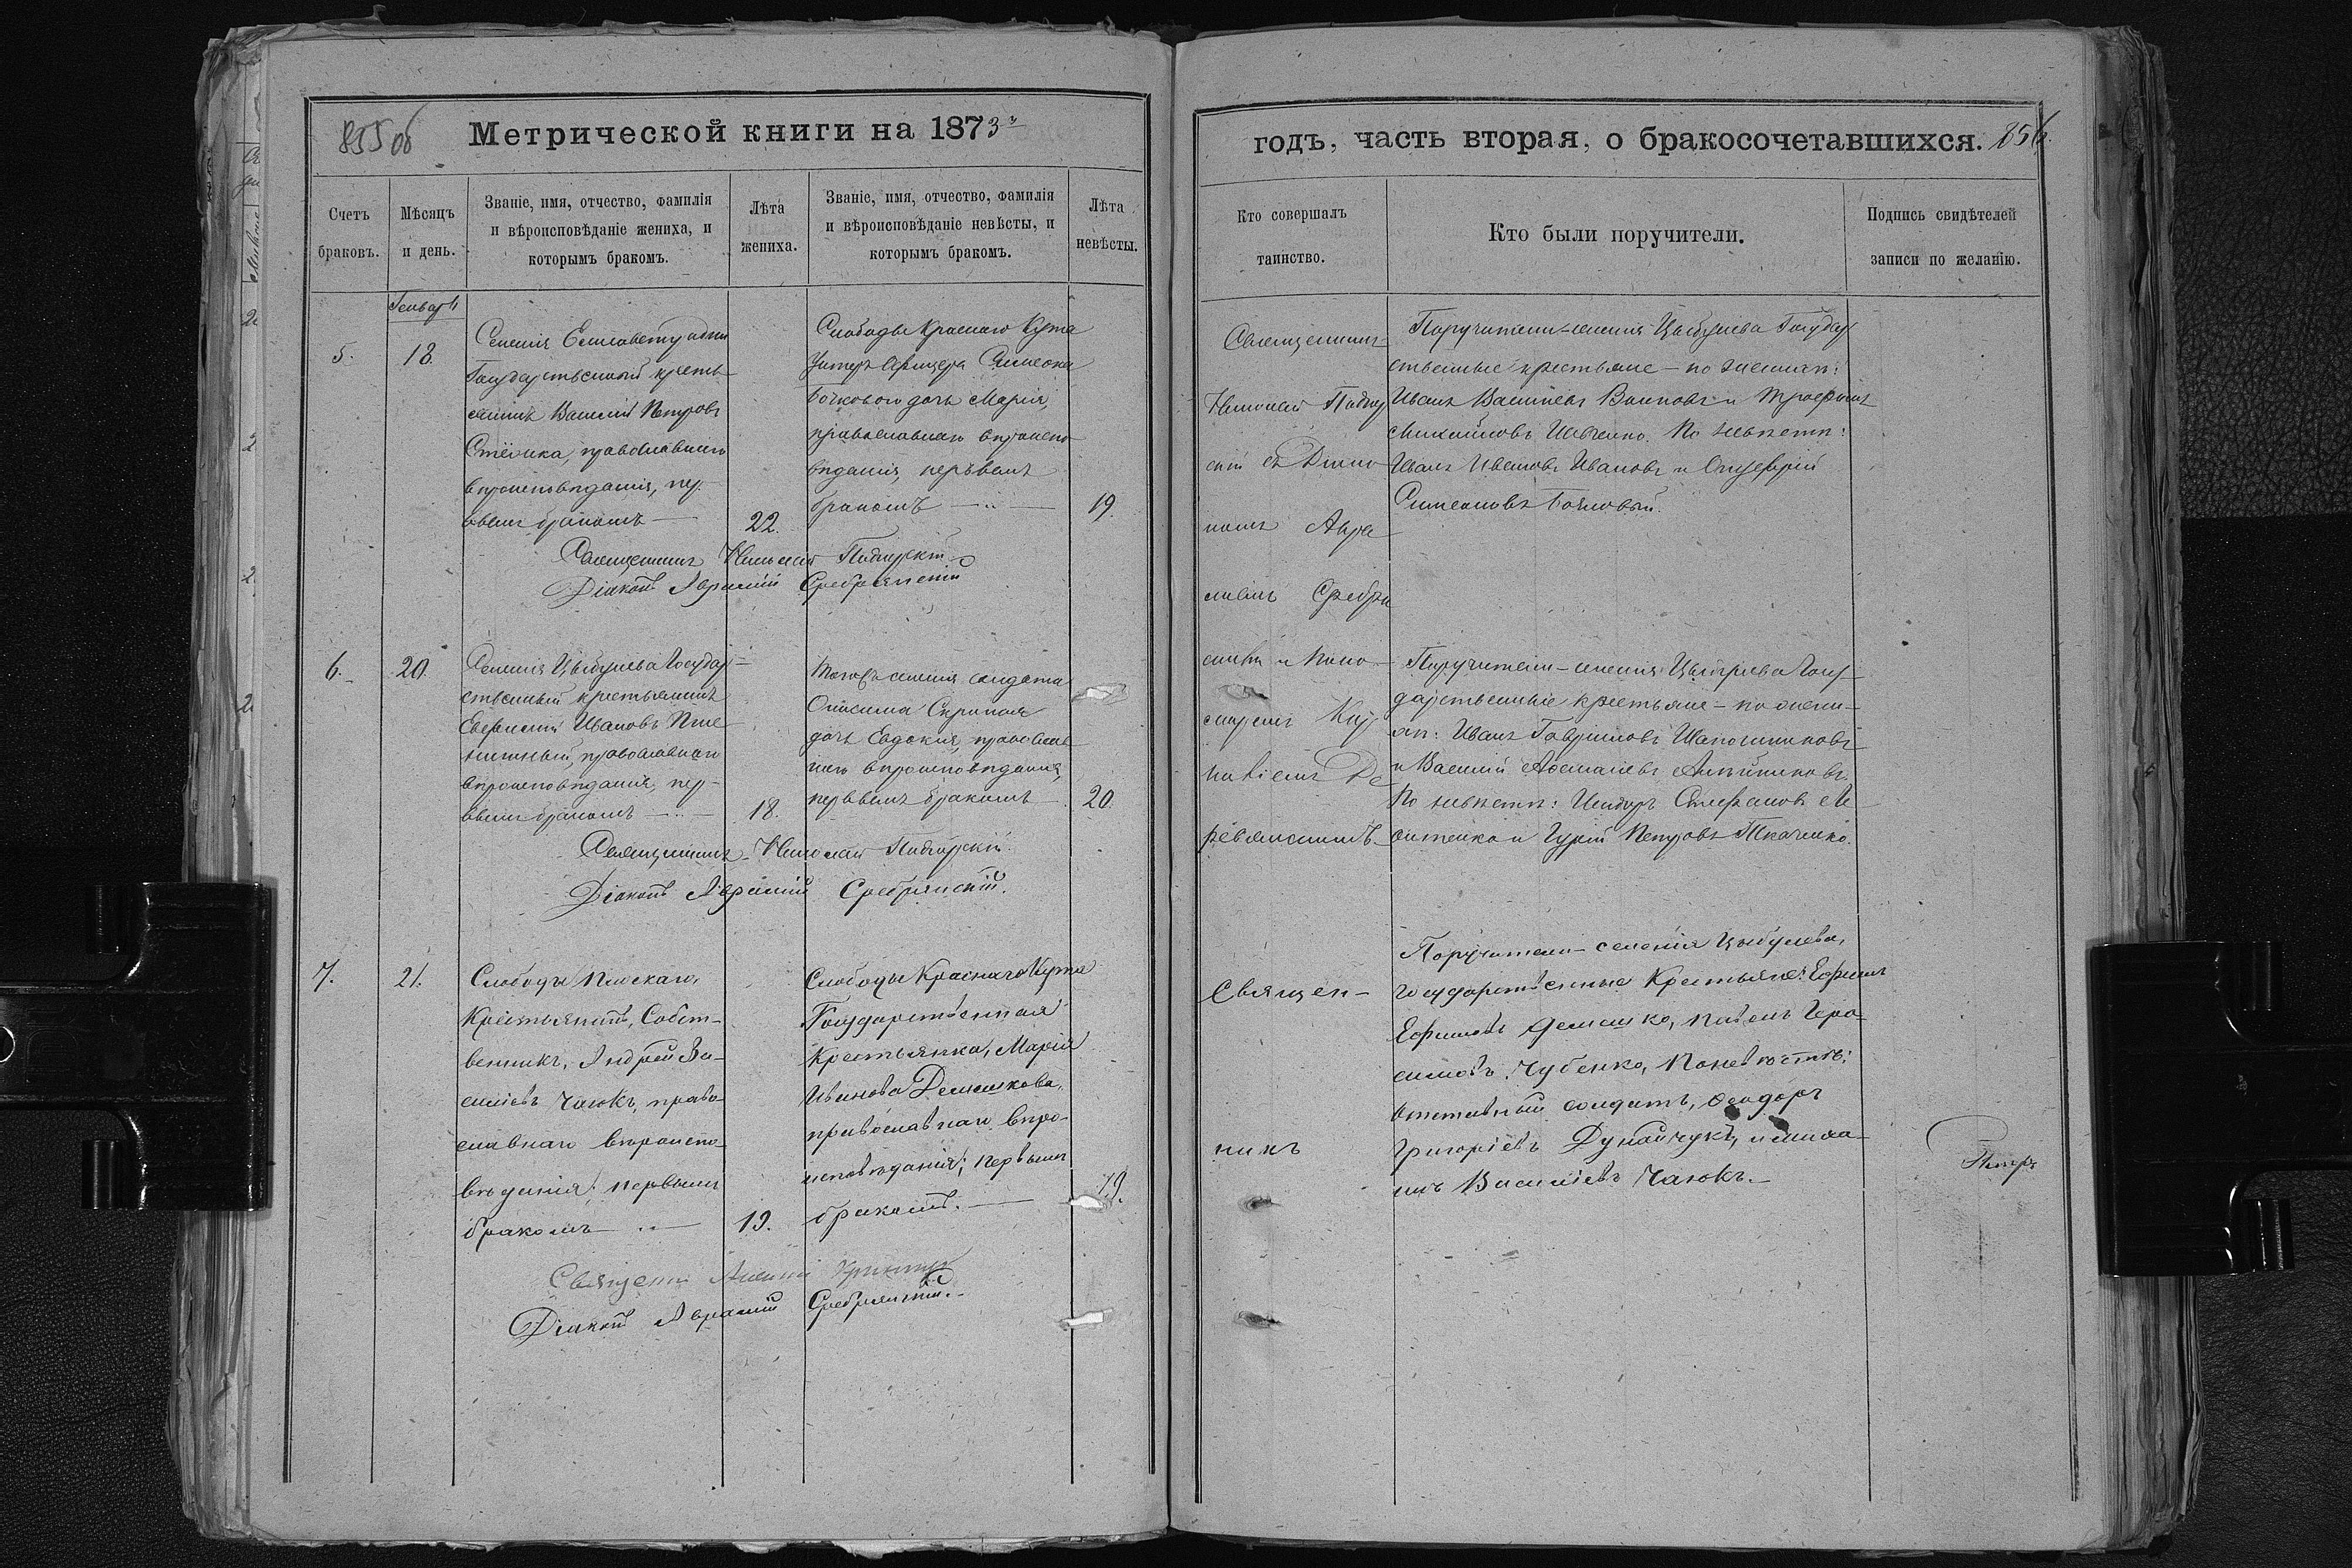 855 об
Метрической книги на 1873
Счетъ браковъ.
Мѣсяцъ и день.
Званіе, имя, отчество, фамилія
и вѣроисповѣданіе жениха, и
которымъ бракомъ.
Лѣта
жениха.
Званіе, имя, отчество, фамилія
и вѣроисповѣданіе невѣсты, и
которымъ бракомъ.
Лѣта
невѣсты.
Генварь
5.
18.
Селенія
Государственный кресть
янинъ Василій Петровъ
православнаго
вѣроисповѣданія, пер-
вымъ бракомъ
22.
Слободы Краснаго Кута
Унтеръ Офицера Симеона
дочь Марія,
православнаго вѣроиспо
вѣданія, первымъ
бракомъ
19.
Священникъ Николай
Діаконъ Аврамій Сребрянскій
6.
20.
Селенія Цыбулева Государ-
ственный крестьянинъ
Ивановъ Пше
ничный, православнаго
вѣроисповѣданія, пер-
вымъ бракомъ
18.
Тогожъ селенія солдата
дочь Евдокія, православ
наго вѣроисповѣданія,
первымъ бракомъ
20.
Священникъ Николай
Діаконъ Аврамій Сребрянскій.
7.
21.
Слободы Плоскаго,
Крестьянинъ, Собст-
венникъ, Андрей Ва-
силіевъ Чаюкъ, право-
славнаго вѣроиспо-
вѣданія, первымъ
бракомъ
19.
Слободы Краснаго Кута
Государственная
Крестьянка, Марія
Иванова Демешкова,
православнаго вѣро-
исповѣданія, первымъ
бракомъ.
19.
Діаконъ Аврамій Сребрянскій.
годъ, часть вторая, о бракосочетавшихся. 856.
Кто совершалъ
таинство.
Кто были поручители.
Подпись свидѣтелей
записи по желанію.
Священникъ
Николай
скій съ Діако
номъ Авра
міемъ Сребрян
скимъ и Поно
маремъ
Поручители селенія Цыбулева Государ
ственные крестьяне — по женихѣ:
Иванъ Васильевъ и Трофимъ
Михайловъ Шевченко. По невѣстѣ:
Иванъ Ивановъ Ивановъ и
Симеоновъ
Поручители — селенія Цыбулева Госу
дарственные крестьяне — по жени-
хѣ: Иванъ Гавриловъ Шапошниковъ
и Василій
По невѣстѣ: Исидоръ Стефановъ
и Гурій Петровъ Ткаченко.
Священ-
никъ
Поручители — селенія Цыбулева,
Государственные Крестьяне: Ефимъ
Ефимовъ Демешко, Павелъ Гера
симовъ Чубенко, По невѣстѣ:
отставный солдатъ, Ѳеодоръ
Григоріевъ Дунайчукъ, и Миха-
илъ Василіевъ Чаюкъ.
Петръ